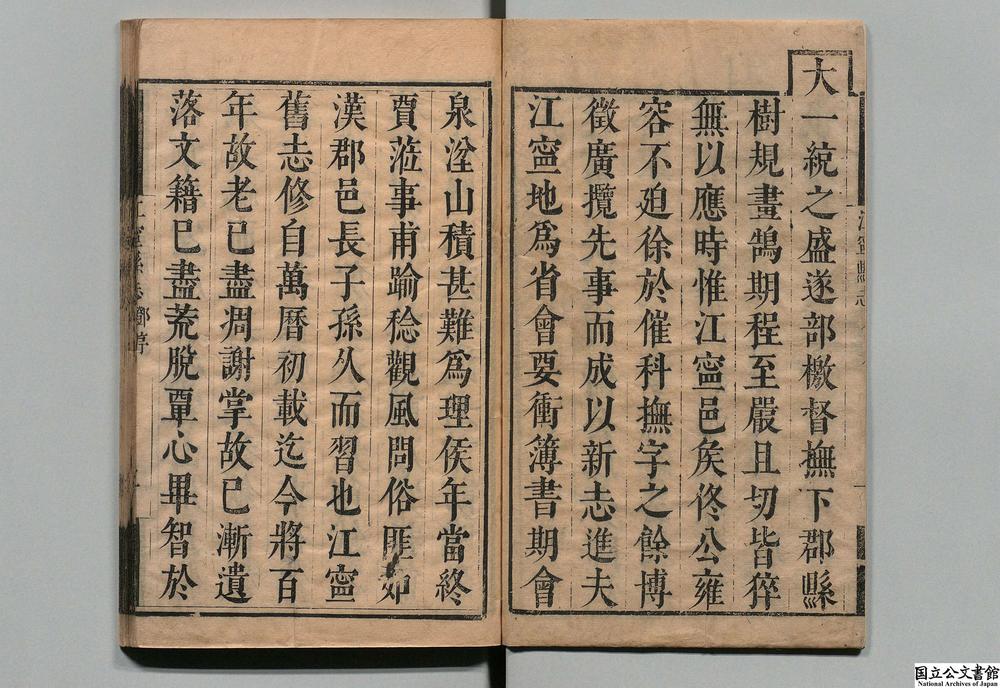 大一統之盛遂部檄督撫下郡縣
樹規畫鵠期程至嚴且切皆猝
無以應時惟江寧邑矦佟公雍
容不廹徐於催科撫字之餘博
徵廣攬先事而成以新志進夫
江寧地爲省會要衝簿書期會
泉涖山積甚難爲理矦年當終
賈蒞事甫踰稔觀風問俗匪如
漢郡邑長子孫久而習也江寧
舊志修自萬曆初載迄今將百
年故老已盡凋謝掌故已漸遺
落文籍已盡荒脫覃心畢智於
江寧縣志
江寧縣志
国立公文書館
National Archives of Japan